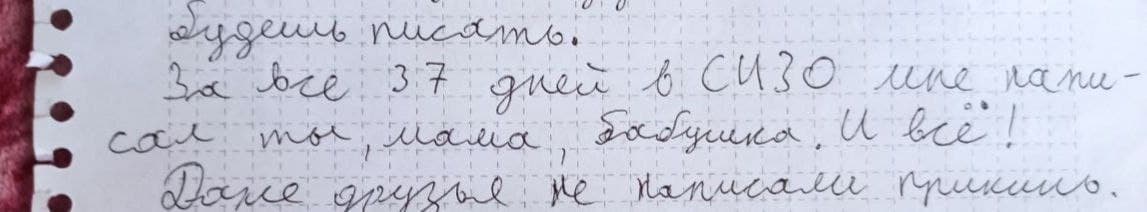 будешь писать.
За все 37 дней в СИЗО мне напи-
сал ты, мама, бабушка. И всё!
Даже друзья не написали прикинь.